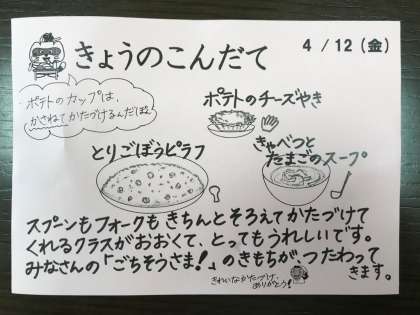 きょうのこんだて
4 / 12 (金)
ポテトのカップは、
かさねてかたづけるんだぽよ
ポテトのチーズやき
とりごぼうピラフ
きゃべつと
たまごのスープ
スプーンもフォークもきちんとそろえてかたづけて
くれるクラスがおおくて、とってもうれしいです。
みなさんの「ごちそうさま!」のきもちが、つたわって
きます。
きれいなかたづけ、
ありがとう!